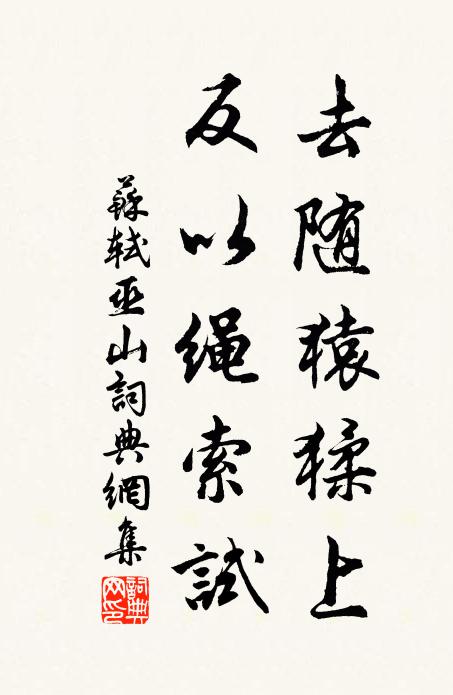 去随猿猱上
反以绳索試
蘇軾巫山詞典網集
詞典網印